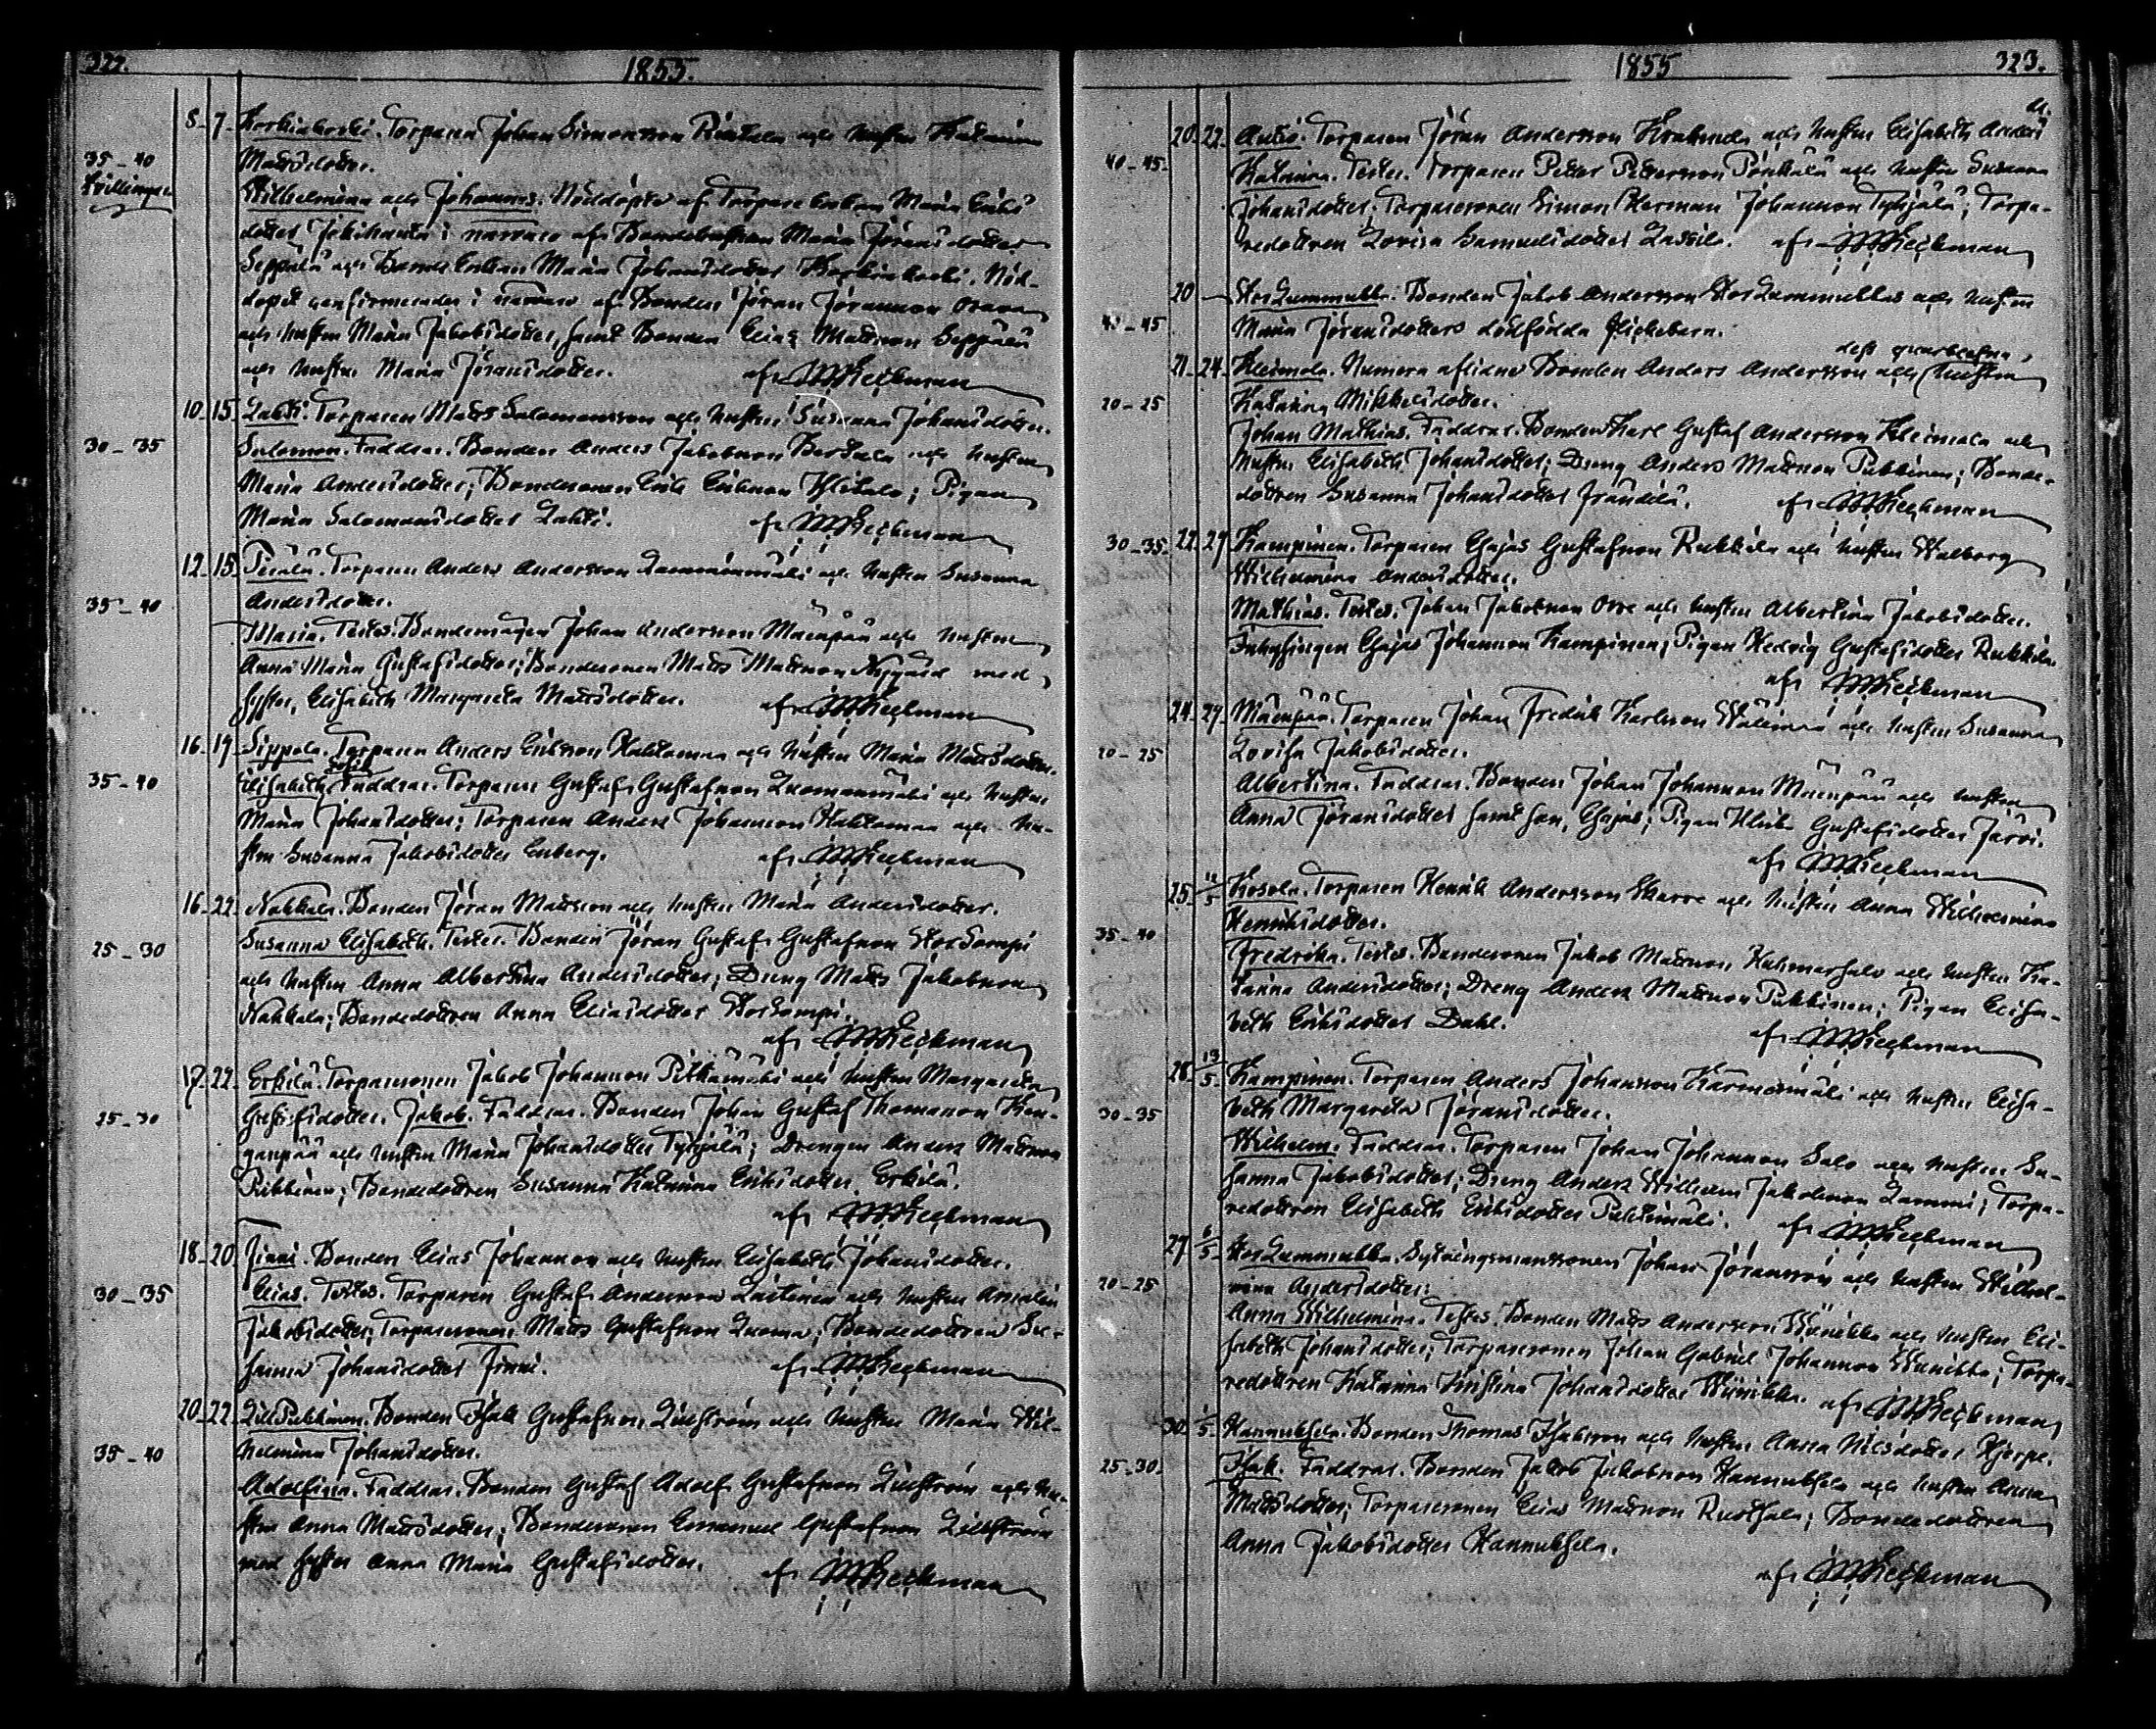 322.
1855.
8. 7. Koskinkoski. Torparen Johan Simonsson Rintala och hustrun Katarina
35-40 Mattsdotter.
Tvillingar
Wilhelmina och Johannes. Nöddöpte af Torpare Enkan Maria Eriks
dotter i närvaro af Bondehustrun Maria Jöransdotter
Seppälä och Bonde Enkan Maria Johansdotter Koskinkoski. Nöd-
dopet confirmerades i närvaro af Bonden Jöran Jöransson Orava
och hustrun Maria Jakobsdotter, samt Bonden Elias Mattsson Seppälä
och hustru Maria Jöransdotter. af
10. 15. Lahti. Torparen Matts Salomonsson och hustrun Susanna Johansdotter.
30-35 Salomon. Faddrar. Bonden Anders Jakobsson och hustrun
Maria Andersdotter; Bondesonen Erik Eriksson Ylitalo; Pigan
Maria Salomonsdotter Lahti. af
12. 15. Torparen Anders Andersson och hustrun Susanna
35-40 Andersdotter.
Maria. Testes. Bondemågen Johan Andersson Mäenpää och hustrun
Anna Maria Gustafsdotter; Bondesonen Matts Mattsson Nygård med
syster, Elisabeth Margareta Mattsdotter. af
16. 17. Sippola. Torparen Anders Eriksson och hustrun Maria Mattsdotter.
35-40 Elisabeth Sofia Faddrar. Torparen Gustaf Gustafsson Luomanmäki och hustrun
Maria Johansdotter; Torparen Anders Johansson och hu-
strun Susanna Jakobsdotter Enberg. af
16. 22. Nahkala. Bonden Jöran Mattsson och hustrun Maria Andersdotter.
25-30 Susanna Elisabeth. Testes. Bonden Jöran Gustaf Gustafsson
och hustrun Anna Albertina Andersdotter; Dreng Matts Jakobsson
Nahkala; Bondedottren Anna Eliasdotter af
17. 22. Erkilä. Torparesonen Jakob Johansson Pitkämäki och hustrun Margareta
25-30 Gustafsdotter. Jakob. Faddrar. Bonden Johan Gustaf Thomasson Kan-
ganpää och hustrun Maria Johansdotter Tyhjälä; Drengen Anders Mattsson
Pukkinen; Bondedottren Susanna Katarina Eriksdotter Erkilä.
af
18. 20. Jinni. Bonden Elias Johansson och hustrun Elisabeth Johansdotter.
30-35 Elias. Testes. Torparen Gustaf Andersson Laitinen och hustrun Amalia
Jakobsdotter; Torparesonen Matts Gustafsson Luoma; Bondedottren Su-
sanna Johansdotter Jinni. af
20. 22. LillPukkinen. Bonden Isak Gustafsson Liljeström och hustrun Maria Wil-
35-40 helmina Johansdotter.
Adolfina. Faddrar. Bonden Gustaf Adolf Gustafsson och hu-
strun Anna Mattsdotter; Bondesonen Emanuel Gustafsson
med syster Anna Maria Gustafsdotter. af
1855
323.
20. 22. Autio. Torparen Jöran Andersson och hustrun Elisabeth Anders dr.
40-45. Katarina. Testes. Torparen Petter Pettersson och hustrun Susanna
Johansdotter; Torparesonen Simon Herman Johansson Tyhjälä; Torpa-
redottren Lovisa Samuelsdotter Lassila. af
20 StorLammukka. Bonden Jakob Andersson StorLammukkas och hustrun
40-45 Maria Jöransdotters dödfödda flickebarn.
21. 24. Kleimola. Numera aflidne Bonden Anders Andersson och dess hustrun
20-25 Katarina Mikkelsdotter.
Johan Mathias. Faddrar. Bonden Karl Gustaf Andersson Kleimola och
hustrun Elisabeth Johansdotter; Dreng Anders Mattsson Pukkinen; Bonde-
dottren Susanna Johansdotter Frändilä. af
30-35. 22. 27 Kampinen. Torparen Gajus Gustafsson Rukkila och hustrun Walborg
Wilhelmina Andersdotter.
Mathias. Testes. Johan Jakobsson och hustrun Albertina Jakobsdotter.
Inhysingen Gajus Johansson Kampinen; Pigan Hedvig Gustafsdotter Rukkila.
af
24. 27. Mäenpää. Torparen Johan Fredrik Karlsson och hustrun Susanna
20-25 Lovisa Jakobsdotter.
Albertina. Faddrar. Bonden Johan Johansson Mäenpää och hustrun
Anna Jöransdotter samt son, Gajus; Pigan Ulrika Gustafsdotter Järvi.
af
25. 11/5 Kosola. Torparen Henrik Andersson och hustrun Anna Wilhelmina
35-40 Henriksdotter.
Fredrika. Testes. Bondesonen Jakob Mattsson och hustrun Ka-
tarina Andersdotter; Dreng Anders Mattsson Pukkinen; Pigan Elisa-
beth Eriksdotter Dahl. af
28. 13/5. Kampinen. Torparen Anders Johansson och hustrun Elisa-
30-35 beth Margareta Jöransdotter.
Wilhelm. Faddrar. Torparen Johan Johansson Salo och hustrun Su-
sanna Jakobsdotter; Dreng Anders Wilhelm Jakobsson Lammi; Torpa-
redottren Elisabeth Eriksdotter Puhtimäki. af
27. 6/5. StorLammukka. Sytningsmanssonen Johan Jöransson och hustrun Wilhel-
20-25 mina Andersdotter.
Anna Wilhelmina. Testes. Bonden Matts Andersson och hustrun Eli-
sabeth Johansdotter; Torparesonen Johan Gabriel Johansson; Torpa-
redottren Katarina Kristina Johansdotter af
30. 1/5. Hannuksela. Bonden Thomas Isaksson och hustrun Anna Nilsdotter Hjerpe.
25-30. Isak. Faddrar. Bonden Jakob Jakobsson Hannuksela och hustrun Anna
Mattsdotter; Torparesonen Elias Mattsson; Bondedottren
Anna Jakobsdotter Hannuksela.
af